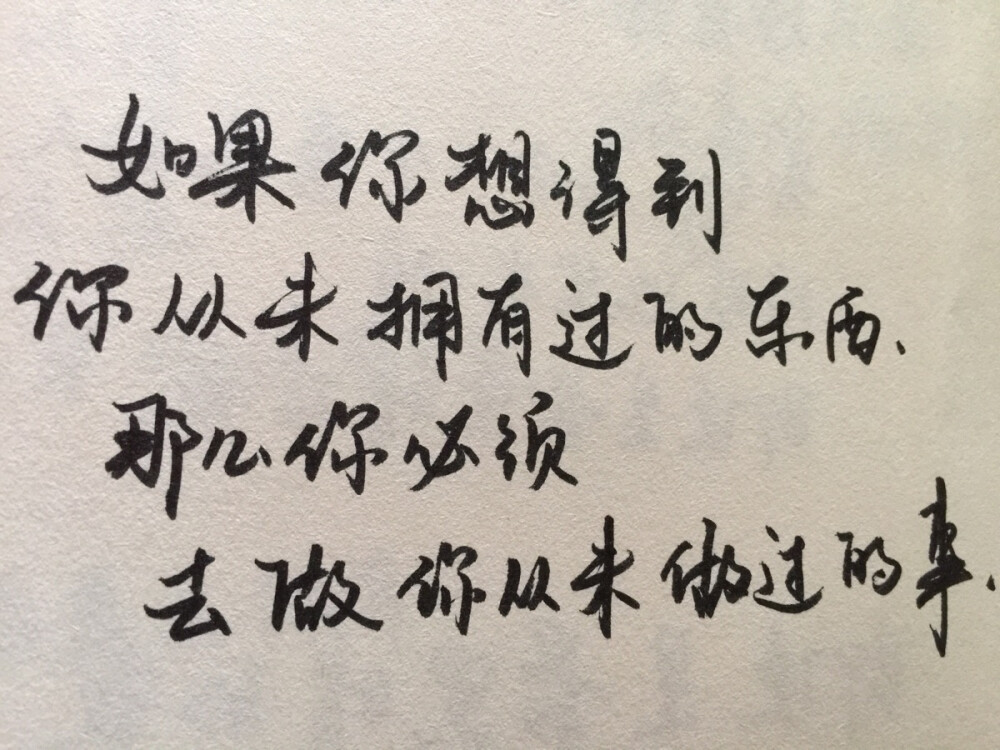 如果你想得到
你从未拥有过的东西、
那么你必须
去做你从未做过的事、